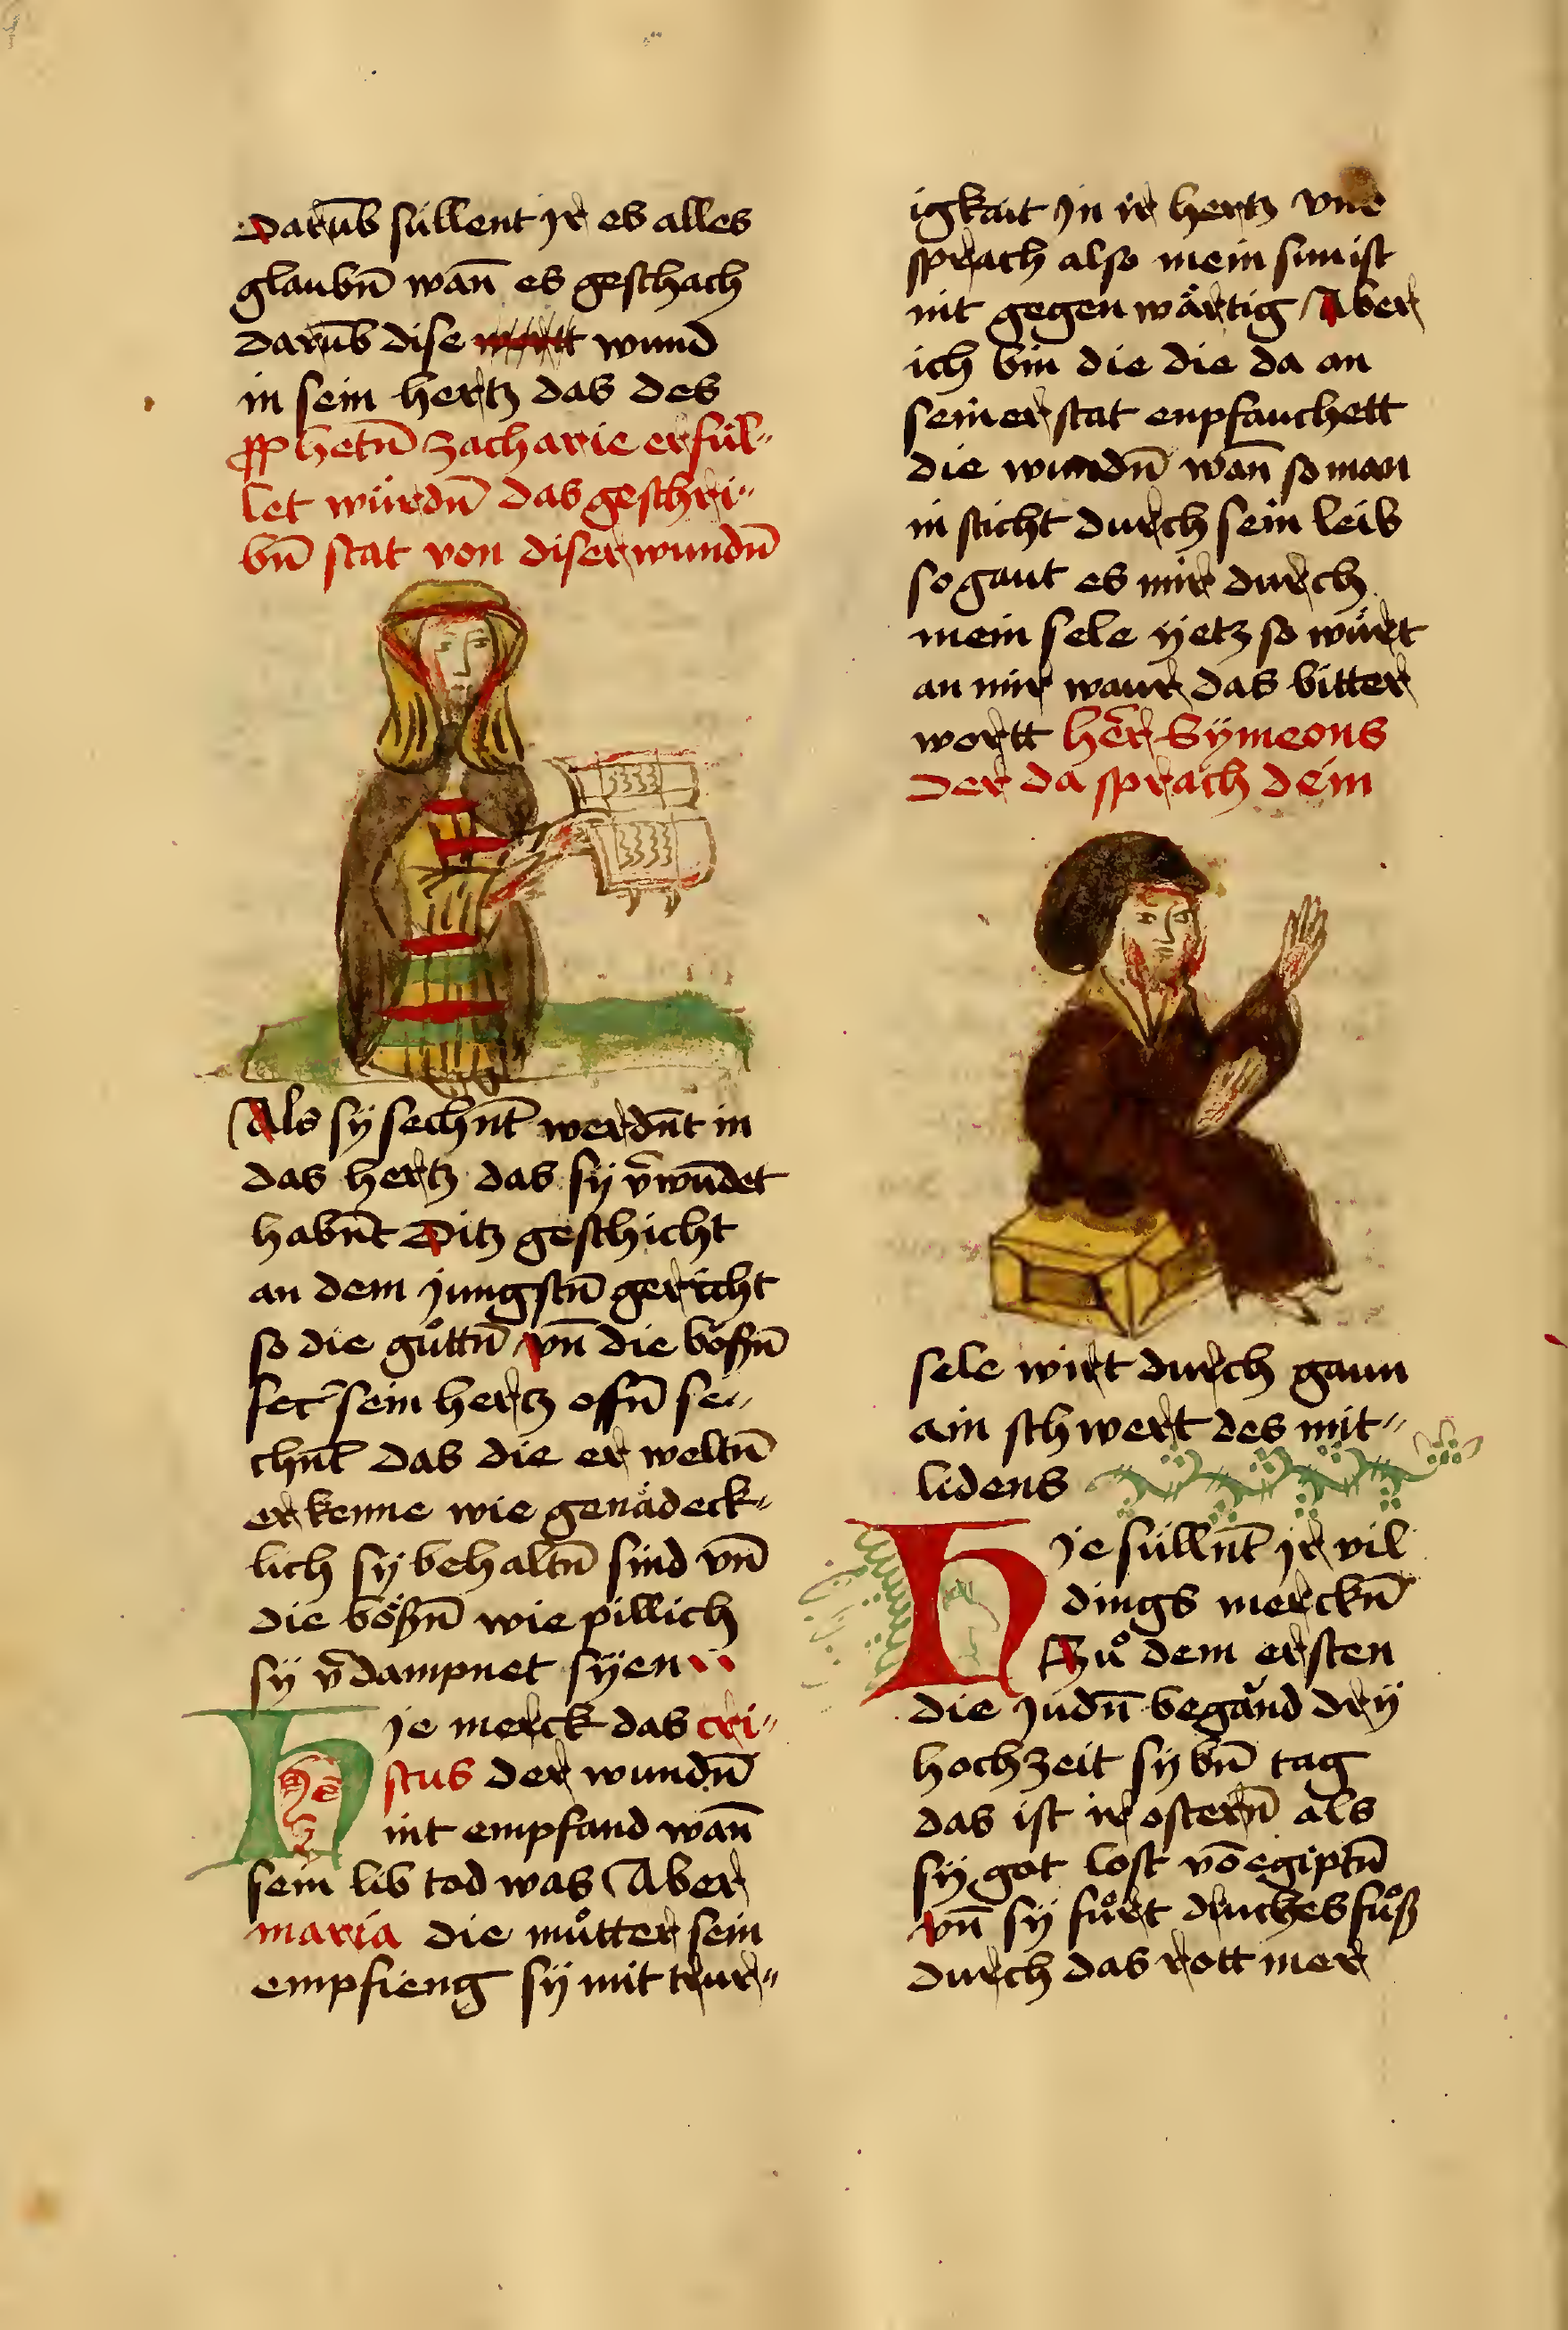 Darūb süllent jr es alles
glaubn̄ wan̄ es geschach
darūb dise wortt wund
in sein hertz das des
pphetn̄ zacharie erfül„
let würdn̄ das geschri„
bn̄ stat von diser wundn̄
Als sÿ sechnt̄ werdn̄t in
das hertz das sÿ v̄wūdet
habn̄t Ditz geschicht
an dem jungstn̄ gericht
so die gůttn̄ vn̄ die bößn̄
sein hertz offn̄ se„
chnt̄ das die er weltn̄
erkenne wie genädeck„
lich sÿ behaltn̄ sind vn̄
die bößn̄ wie pillich
sÿ v̄dampnet sÿen
Hje merck das cri„
stus der wundn̄
nit empfand wan̄
sein lib tod was Aber
maria die můtter sein
empfieng sÿ mit trur„
igkait jn ir hertz vnd
sprach also mein sun ist
nit gegenwärtig Aber
ich bin die die da an
seiner stat enpfauchett
die wundn̄ wan̄ so man
in sticht durch sein leib
so gaut es mir durch
mein sele ÿetz so würt
an mir waur das bitter
wortt her̄ Sÿmeons
der da sprach dein
sele wirt durch gaun
ain schwert des mit„
lidens
Hje süllnt̄ jr vil
dings merckn̄
Zů dem ersten
die judn̄ begänd drÿ
hochzeit sÿbn̄ tag
das ist ir ostern̄ als
sÿ got lost vō egiptn̄
vn̄ sÿ fůrt druckes fůß
durch das rott mer